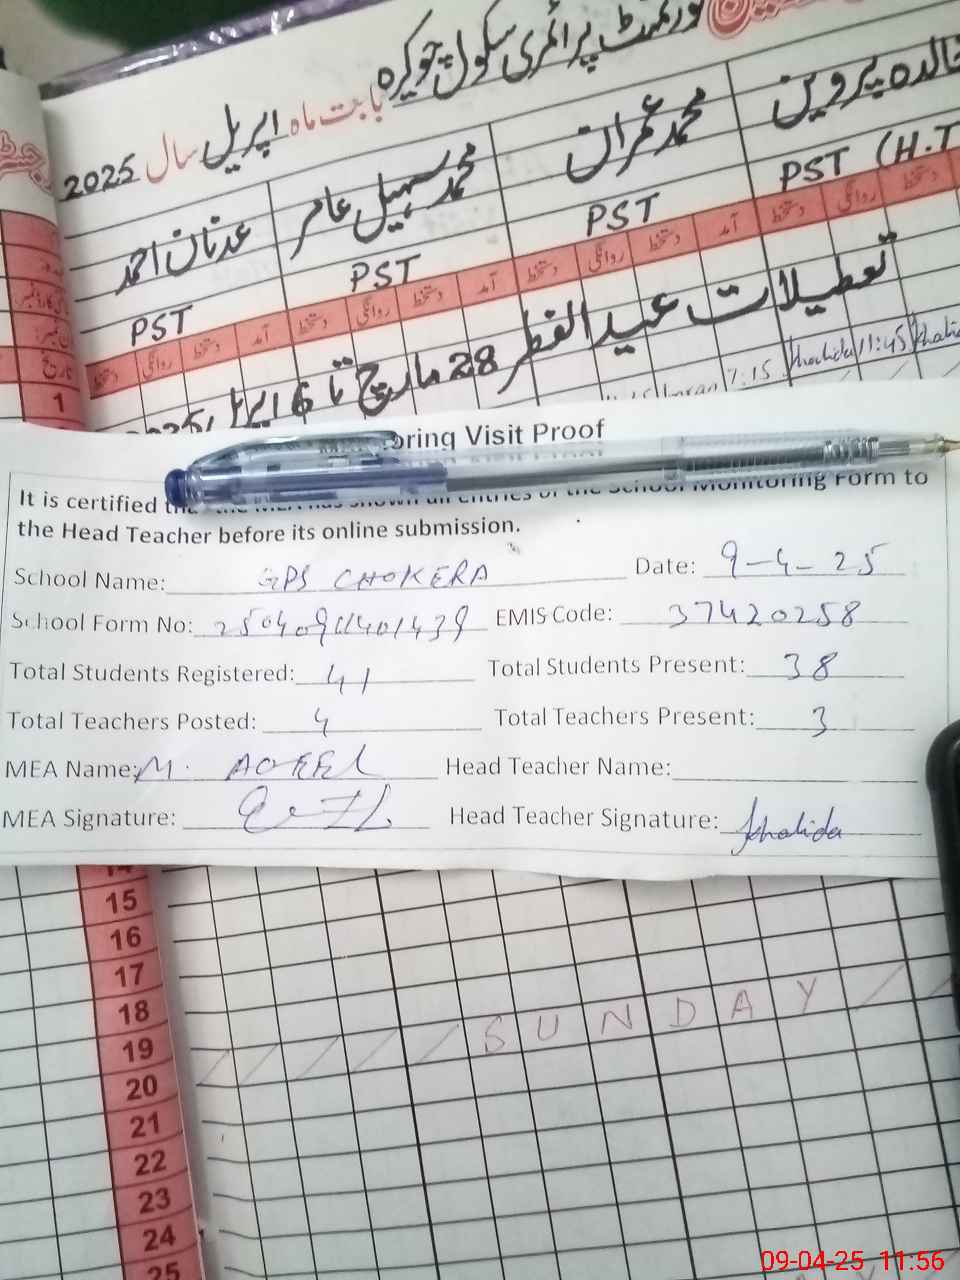 گورنمنٹ پرائمری سکول چوکیرہ
بابت ماہ اپریل سال 2025
عدنان احمد محمد سہیل عامر محمد عمران خالدہ پروین
PST PST PST PST (H.T
دستخط روانگی دستخط آمد دستخط روانگی دستخط آمد دستخط روانگی دستخط آمد دستخط روانگی دستخط
تاریخ
تعطیلات عید الفطر 28 مارچ تا 6 اپریل 2025
1
7:15 khalida 11:45 khalida
oring Visit Proof
It is certified that the MEA has shown all entries of the School Monitoring Form to
the Head Teacher before its online submission.
School Name: GPS CHOKERA Date: 9-4-25
School Form No: 25040911401439 EMIS Code: 37420258
Total Students Registered: 41 Total Students Present: 38
Total Teachers Posted: 4 Total Teachers Present: 3
MEA Name: M. AQEEL Head Teacher Name:
MEA Signature: Head Teacher Signature: khalida
14
15
16
17
18
19
20
SUNDAY
21
22
23
24
25
09-04-25 11:56